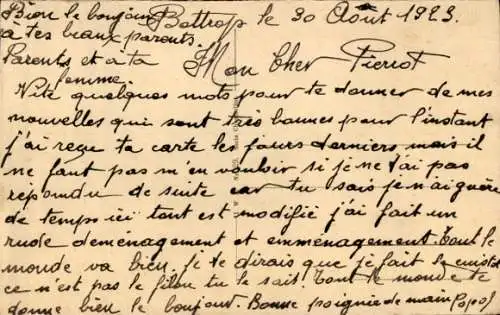 Bien le bonjour
à tes beaux parents
Parents et a ta
femme
Bottrop le 30 Août 1923.
Mon Cher Pierrot
Vite quelques mots pour te donner de mes
nouvelles qui sont très bonnes pour l'instant
j'ai reçu ta carte les jours derniers mais il
ne faut pas m'en vouloir si je ne t'ai pas
répondu de suite car tu sais je n'ai guère
de temps ici tout est modifié j'ai fait un
rude deménagement et emménagement. Tout le
monde va bien, je te dirais que je fait le
ce n'est pas le filon tu le sait. Tout le monde te
donne bien le bonjour. Bonne poignée de main